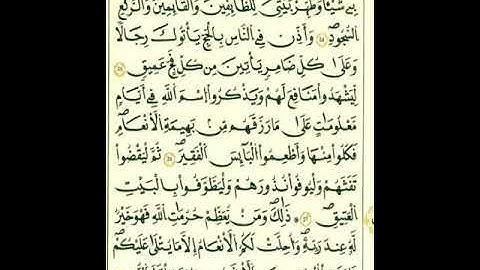 بِي شَيْـًٔا وَطَهِّرْ بَيْتِيَ لِلطَّآئِفِينَ وَالْقَآئِمِينَ وَالرُّكَّعِ
السُّجُودِ وَأَذِّن فِي النَّاسِ بِالْحَجِّ يَأْتُوكَ رِجَالًا
وَعَلَىٰ كُلِّ ضَامِرٍ يَأْتِينَ مِن كُلِّ فَجٍّ عَمِيقٍ
لِّيَشْهَدُوا مَنَافِعَ لَهُمْ وَيَذْكُرُوا اسْمَ اللَّهِ فِي أَيَّامٍ
مَّعْلُومَاتٍ عَلَىٰ مَا رَزَقَهُم مِّنۢ بَهِيمَةِ الْأَنْعَامِ
فَكُلُوا مِنْهَا وَأَطْعِمُوا الْبَآئِسَ الْفَقِيرَ ثُمَّ لْيَقْضُوا
تَفَثَهُمْ وَلْيُوفُوا نُذُورَهُمْ وَلْيَطَّوَّفُوا بِالْبَيْتِ
الْعَتِيقِ ذَٰلِكَ وَمَن يُعَظِّمْ حُرُمَاتِ اللَّهِ فَهُوَ خَيْرٌ
لَّهُ عِندَ رَبِّهِ وَأُحِلَّتْ لَكُمُ الْأَنْعَامُ إِلَّا مَا يُتْلَىٰ عَلَيْكُمْ